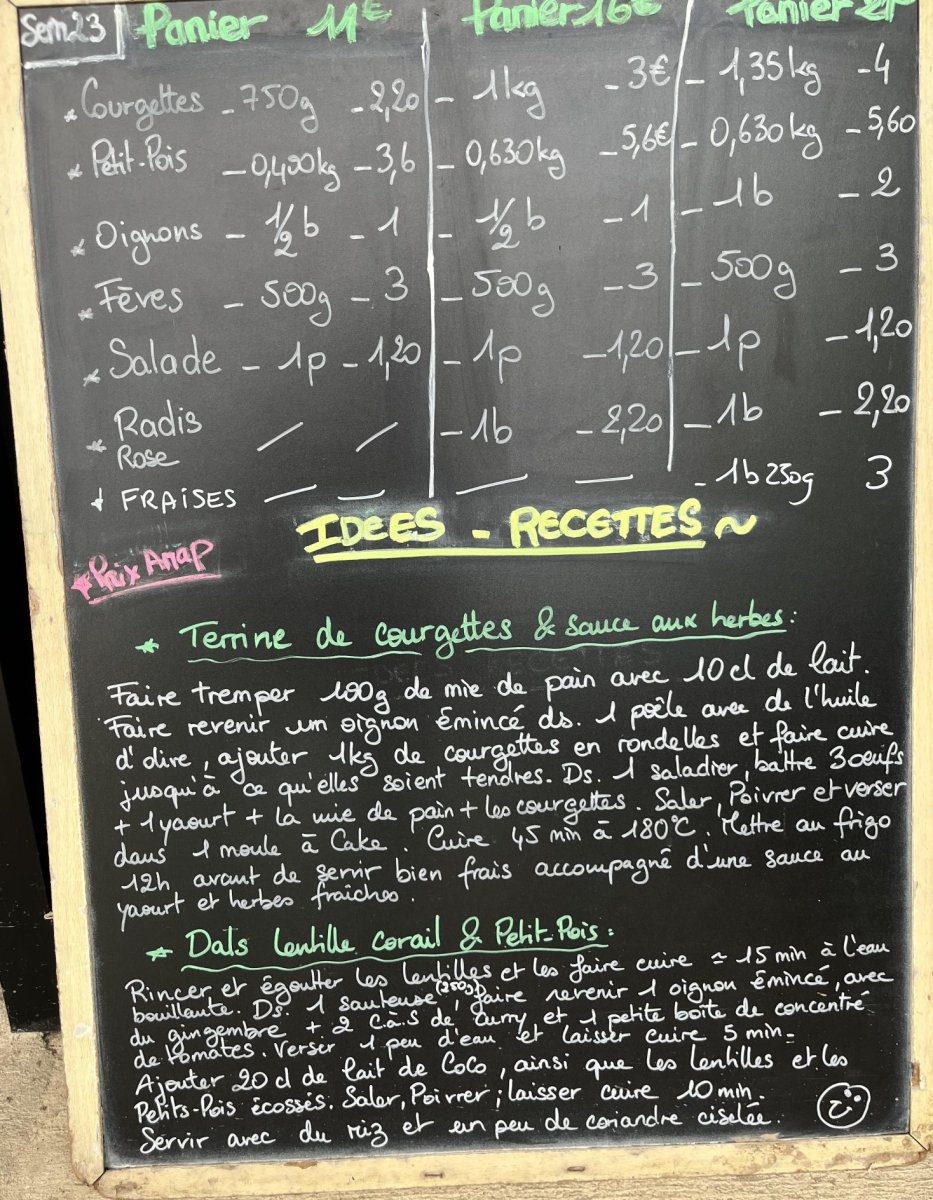 Sem23 Panier 11€ Panier 16€ Panier 21
* Courgettes - 750g - 2,20 - 1kg - 3€ - 1,35kg - 4
* Petit-Pois - 0,400kg - 3,6 - 0,630kg - 5,6€ - 0,630kg - 5,60
* Oignons - 1/2 b - 1 - 1/2 b - 1 - 1b - 2
* Fèves - 500g - 3 - 500g - 3 - 500g - 3
* Salade - 1p - 1,20 - 1p - 1,20 - 1p - 1,20
* Radis Rose / / - 1b - 2,20 - 1b - 2,20
+ FRAISES — — — — - 1b 250g 3
IDEES - RECETTES ~
* Prix Amap
* Terrine de courgettes & sauce aux herbes :
Faire tremper 100g de mie de pain avec 10cl de lait.
Faire revenir un oignon émincé ds. 1 poêle avec de l'huile
d'olive, ajouter 1kg de courgettes en rondelles et faire cuire
jusqu'à ce qu'elles soient tendres. Ds. 1 saladier, battre 3 oeufs
+ 1 yaourt + la mie de pain + les courgettes. Saler, Poivrer et verser
dans 1 moule à Cake. Cuire 45 min à 180°C. Mettre au frigo
12h avant de servir bien frais accompagné d'une sauce au
yaourt et herbes fraîches.
* Dals lentille corail & Petit-Pois :
Rincer et égoutter les lentilles (250g) et les faire cuire ≃ 15 min à l'eau
bouillante. Ds. 1 sauteuse, faire revenir 1 oignon émincé, avec
du gingembre + 2 c.à.s de curry et 1 petite boîte de concentré
de tomates. Verser 1 peu d'eau et laisser cuire 5 min.
Ajouter 20 cl de lait de Coco, ainsi que les lentilles et les
Petits-Pois écossés. Saler, Poivrer ; laisser cuire 10 min.
Servir avec du riz et un peu de coriandre ciselée.